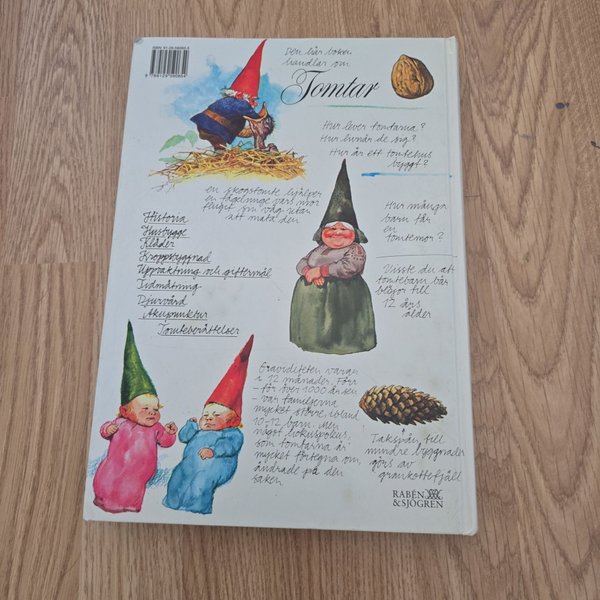 Den här boken
handlar om
Tomtar
Hur lever tomtarna?
Hur livnär de sig?
Hur är ett tomtehus
byggt?
en skogstomte hjälper
en fågelunge vars mor
flugit sin väg utan
att mata den
Historia
Husbygge
Kläder
Kroppsbyggnad
Uppvaktning och giftermål
Tidmätning
Djurvård
Akupunktur
Tomteberättelser
Hur många
barn får
en
tomtemor?
Visste du att
tomtebarn bär
blöjor till
12 års
ålder
Graviditeten varar
i 12 månader. Förr
- för över 1000 år sen
- var familjerna
mycket större, ibland
10-12 barn. Men
något hokuspokus,
som tomtarna är
mycket förtegna om,
ändrade på den
saken
Takspån till
mindre byggnader
görs av
grankottefjäll
RABÉN
&SJÖGREN